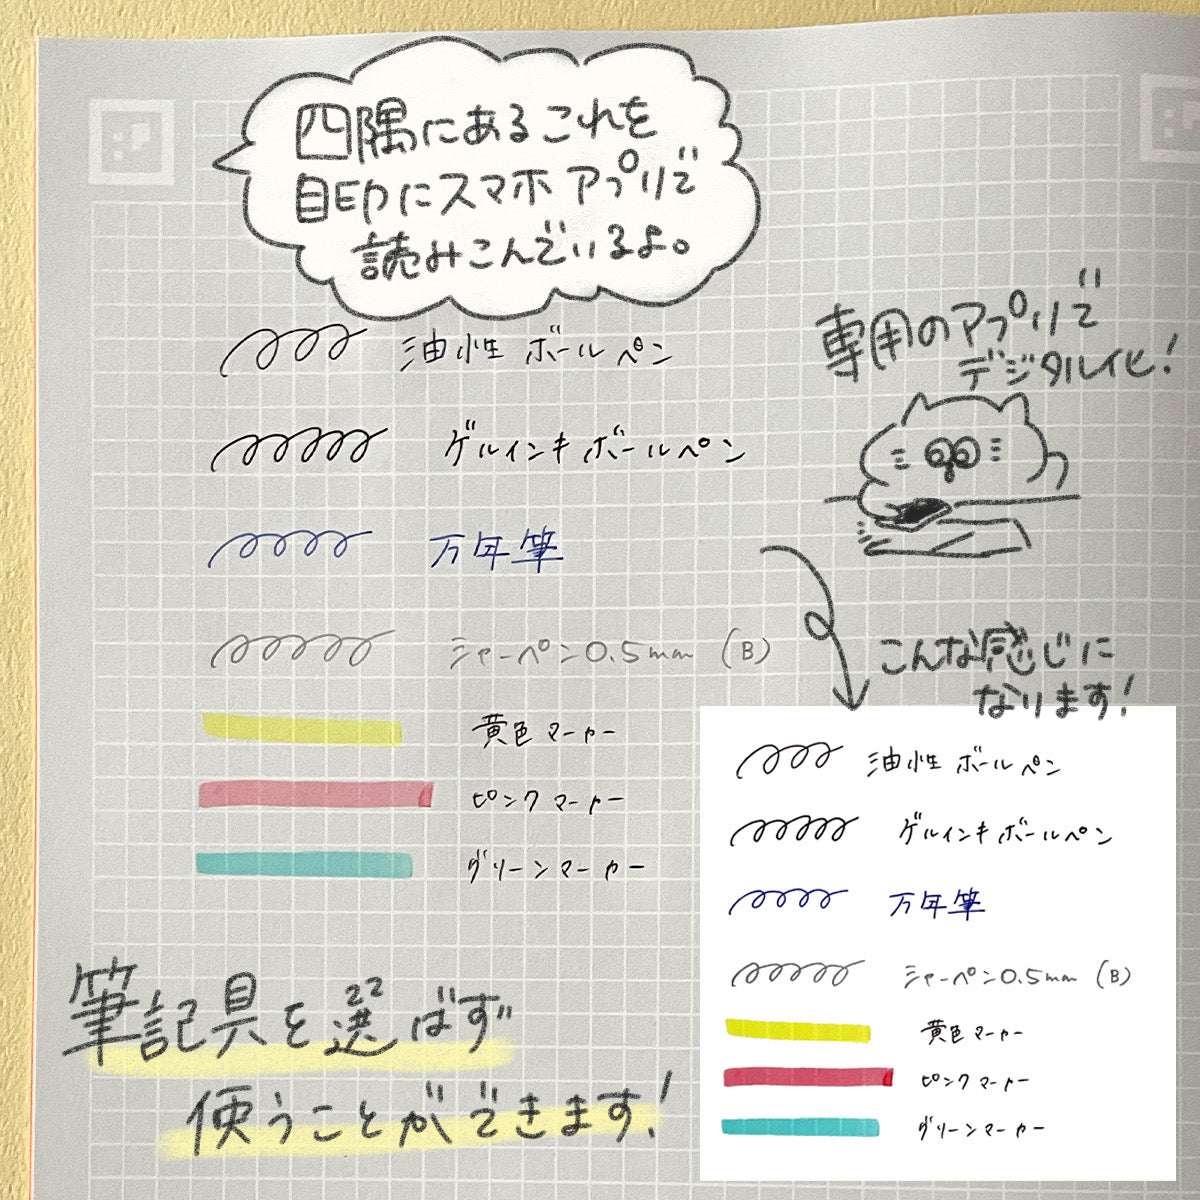 四隅にあるこれを
目印にスマホアプリで
読みこんでいるよ。
油性ボールペン
専用のアプリで
デジタル化!
ゲルインキボールペン
万年筆
シャーペン0.5mm (B)
こんな感じに
なります!
黄色マーカー
ピンクマーカー
グリーンマーカー
油性ボールペン
ゲルインキボールペン
万年筆
シャーペン0.5mm (B)
黄色マーカー
ピンクマーカー
グリーンマーカー
筆記具を選ばず
使うことができます!